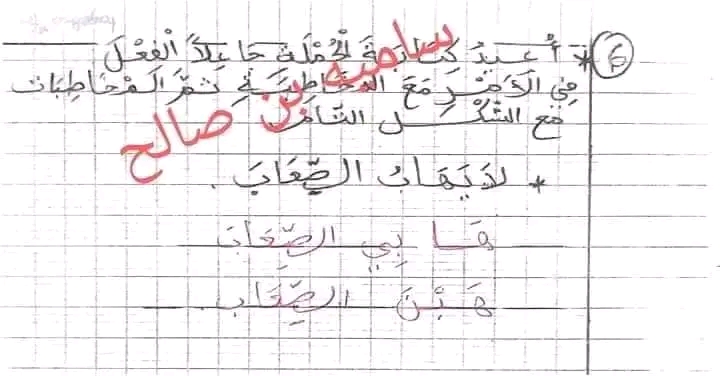 6) * أُعِيدُ كِتَابَةَ الْجُمْلَةِ جَاعِلاً الْفِعْلَ
فِي الأَمْرِ مَعَ المُخَاطَبَةِ ثُمَّ المُخَاطَبَات
مَعَ الشَّكْلِ التَّام
سامية بن صالح
* لاَ يَهَابُ الصِّعَابَ .
هَابِي الصِّعَابَ
هَبْنَ الصِّعَابَ